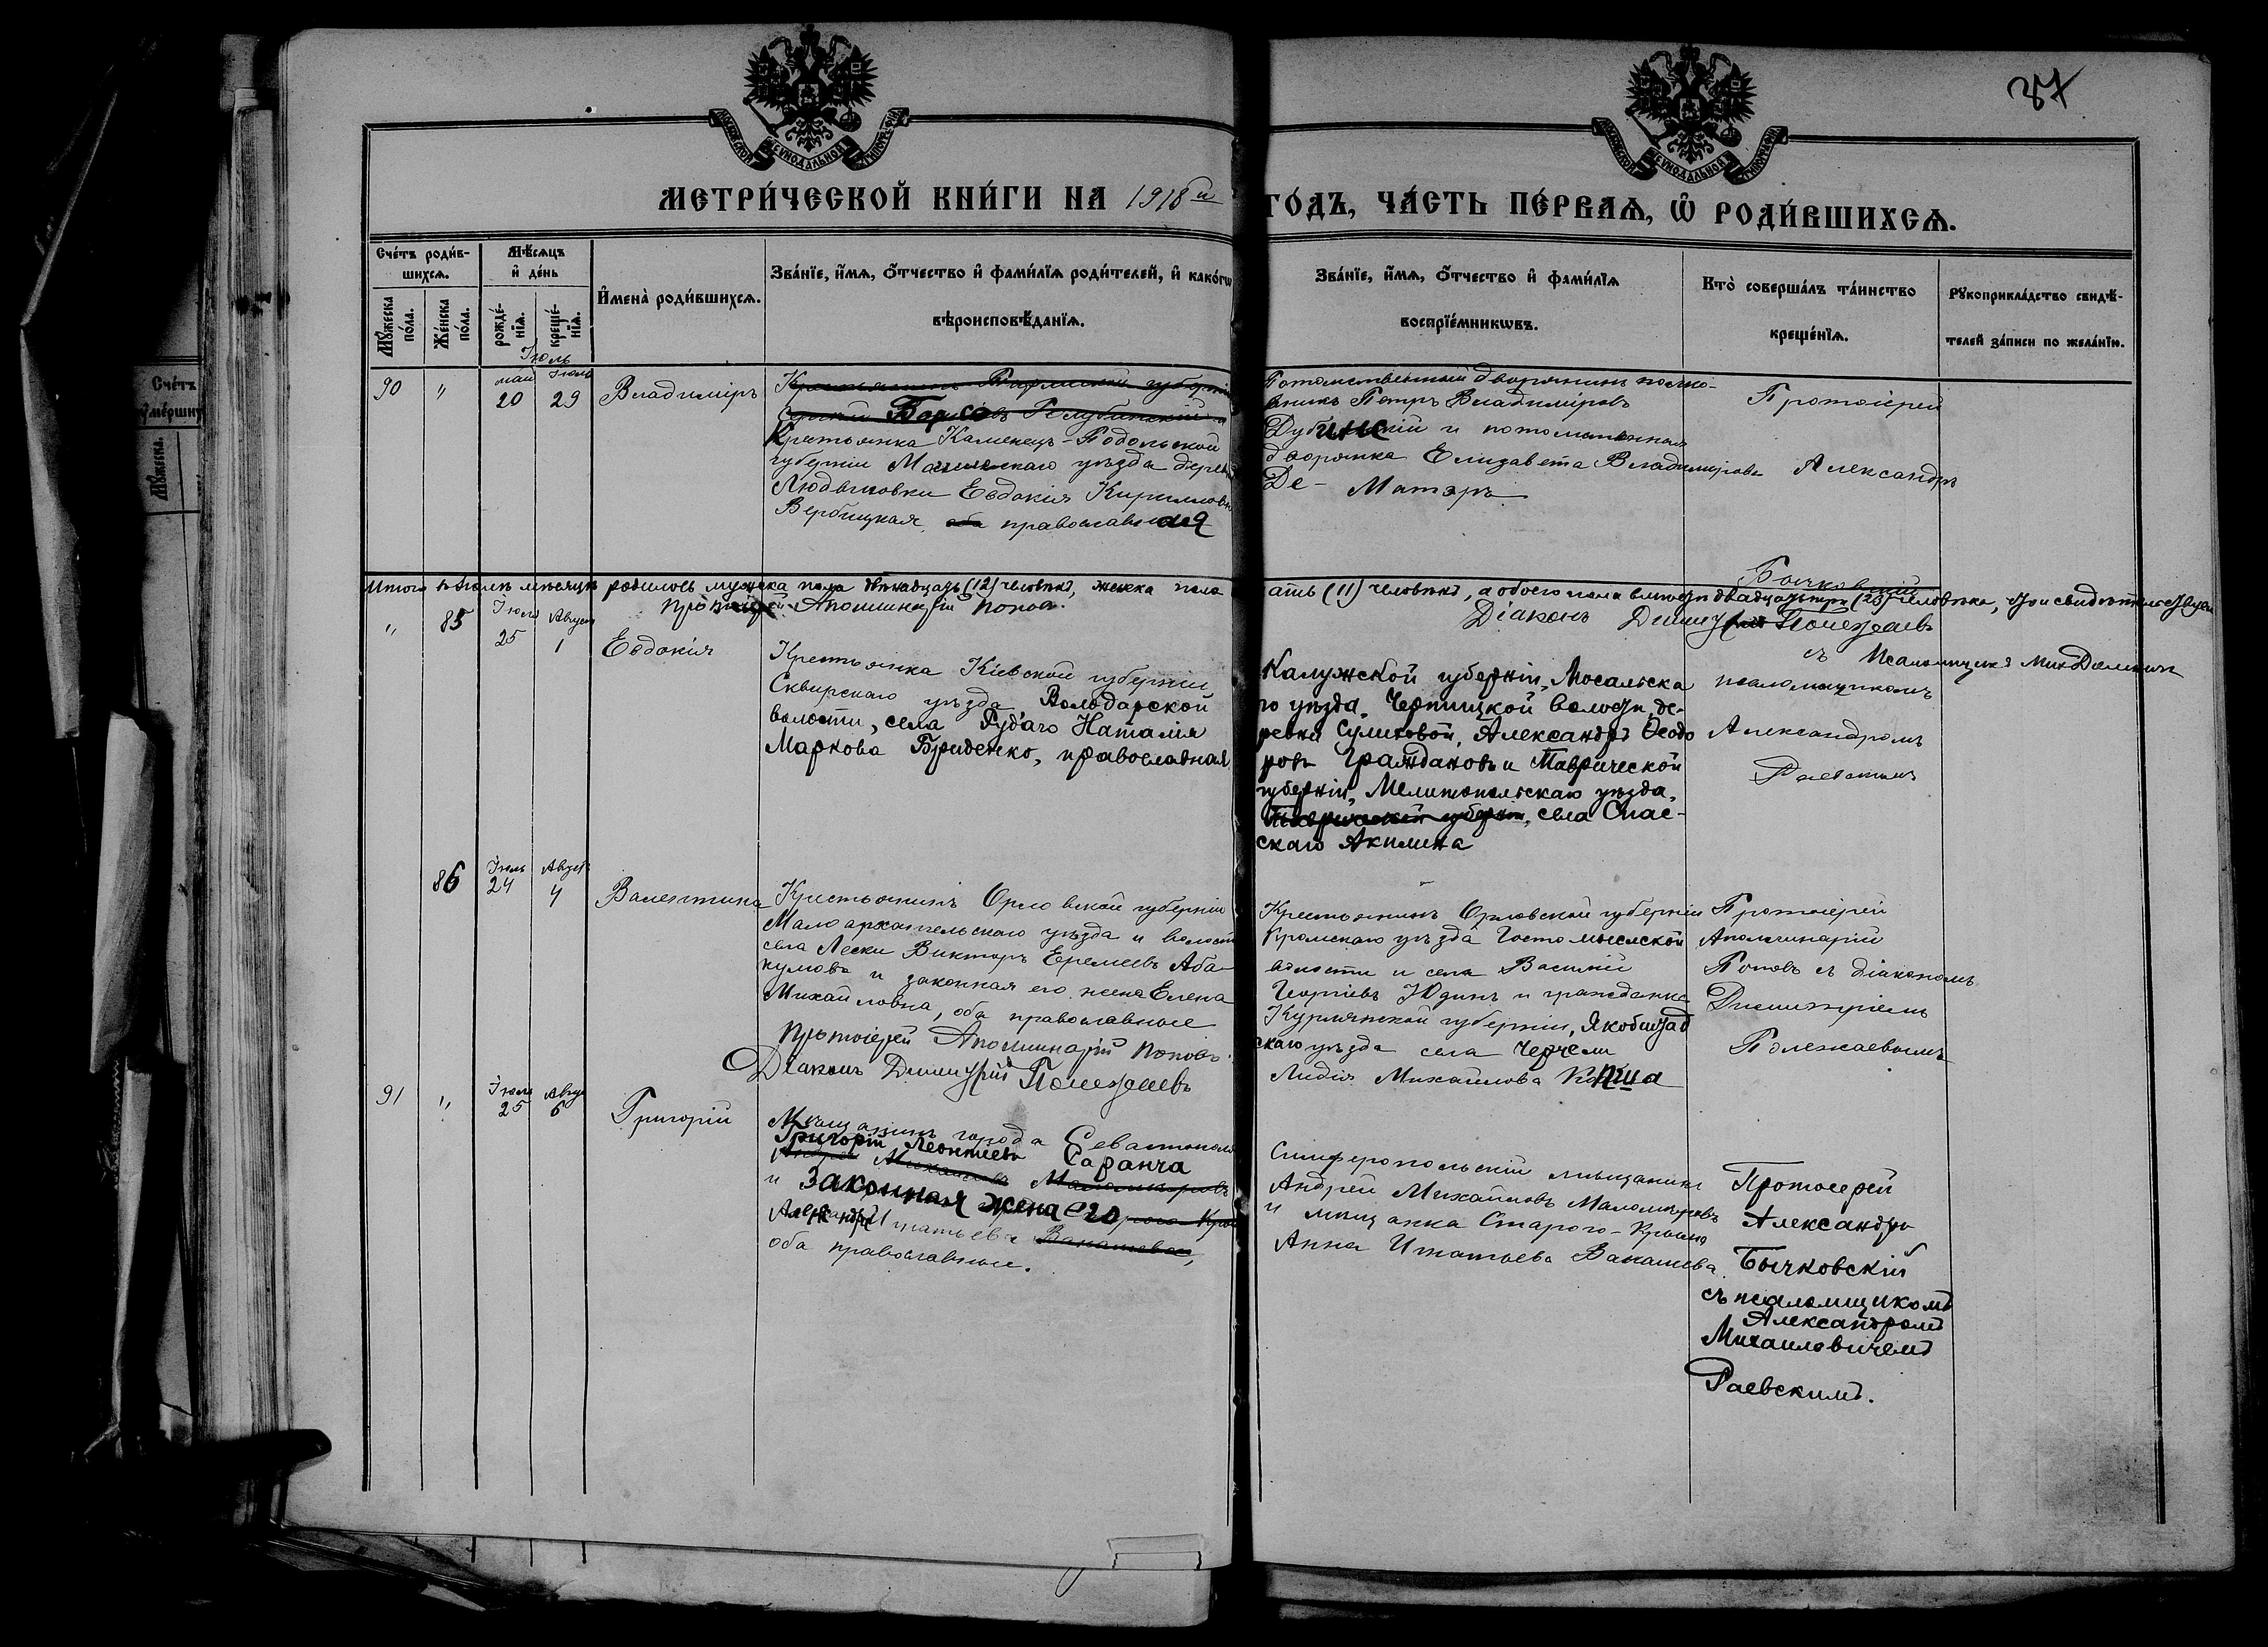 37
МОСКОВСКОЙ СИНОДАЛЬНОЙ ТИПОГРАФІИ
МОСКОВСКОЙ СИНОДАЛЬНОЙ ТИПОГРАФІИ
МЕТРИ́ЧЕСКОЙ КНИ́ГИ НА 1918й ГО́ДЪ, ЧА́СТЬ ПЕ́РВАѦ, Ѡ҆ РОДИ́ВШИХСѦ.
Сче́тъ роди́в-
шихсѧ.
Мꙋ́жеска по́ла.
Же́нска по́ла.
Мѣ́сѧцъ
и҆ де́нь
рожде́-нїѧ.
креще́-нїѧ.
И҆мена̀ роди́вшихсѧ.
Зва́нїе, и҆́мѧ, ѻ҆́тчество и҆ фами́лїѧ роди́телей, и҆ како́гѡ
вѣроисповѣ́данїѧ.
Зва́нїе, и҆́мѧ, ѻ҆́тчество и҆ фами́лїѧ
воспрїе́мникѡвъ.
Кто̀ соверша́лъ та́инство
креще́нїѧ.
Рꙋкоприкла́дство свидѣ́-
телей за́писи по жела́нїю.
Сче́тъ
Мꙋ́жеска
Іюль
90 " май 20 Іюль 29 Владиміръ
Крестьянка Каменецъ-Подольской
губерніи уѣзда
Евдокія Кириллова
Вербицкая, оба православная
Потомственный дворянинъ полко-
вникъ Петръ Владиміровъ
и потомственная
дворянка Елизавета Владимірова
Де-Матэръ
Протоіерей
Александръ
Бычковскій
Итого въ Іюлѣ мѣсяцѣ родилось мужска пола двѣнадцать (12) человѣкъ, женска пола
ать (11) человѣкъ, а обоего пола вмѣстѣ двадцать три (23) человѣка,
Протоіерей Аполлинарій Попов.
Діаконъ Димитрій Полежаевъ
" 85 Іюля 25 Августа 1 Евдокія
Крестьянка Кіевской губерніи
Сквирскаго уѣзда Володарской
волости, села Рудаго Наталія
Маркова Бриденко, православная
Калужской губерніи, Мосальска
го уѣзда, Чертицкой волости, де-
ревни Сулиховой, Александръ Ѳеодо
ровъ Граждановъ и Таврической
губерніи, Мелитопольскаго уѣзда,
Таврической губерніи, села Спас-
скаго Акилина
съ
псаломщикомъ
Александромъ
Раевскимъ
86 Іюль 24 Август 4 Валентина
Крестьянинъ Орловской губерніи
Мало архангельскаго уѣзда и волости
села Лески Викторъ Еремеевъ Аба-
кумовъ и законная его жена Елена
Михайловна, оба православные
Протоіерей Аполлинарій Поповъ.
Діаконъ Димитрій Полежаевъ
Крестьянинъ Орловской губерніи
Кромскаго уѣзда Гостомысльской
волости и села Василий
Георгіевъ Юдинъ и гражданка
Курляндской губерніи, Якобштад
скаго уѣзда села
Лидія Михайлова
Протоіерей
Аполлинарій
Поповъ съ діакономъ
Димитріемъ
Полежаевымъ
91 " Іюля 25 Авгус 6 Григорій
Мѣщанинъ города Севастополя
Григорій Леонтіевъ Саранча
Андрей Михайловъ Маломировъ
и законная жена его
Александра Игнатьева Ванашева,
оба православные.
Симферопольскій мѣщанинъ
Андрей Михайловъ Маломировъ
и мѣщанка Стараго-Крыма
Анна Игнатьева Ванашева.
Протоіерей
Александръ
Бычковскій
съ псаломщикомъ
Александромъ
Михаиловичемъ
Раевскимъ.